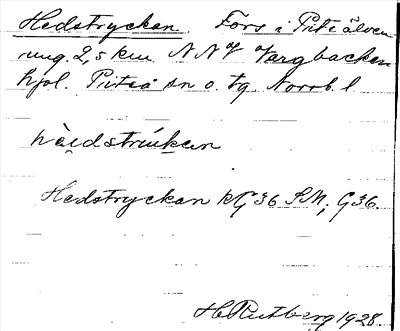 Hedstryckan. Fors i Piteälven
ung. 2,5 km NNV Vargbacken
hpl. Piteå sn o. tg Norrb. l
hèidstríuken
Hedstryckan kG36 SM; G36.
H. Rutberg 1928.